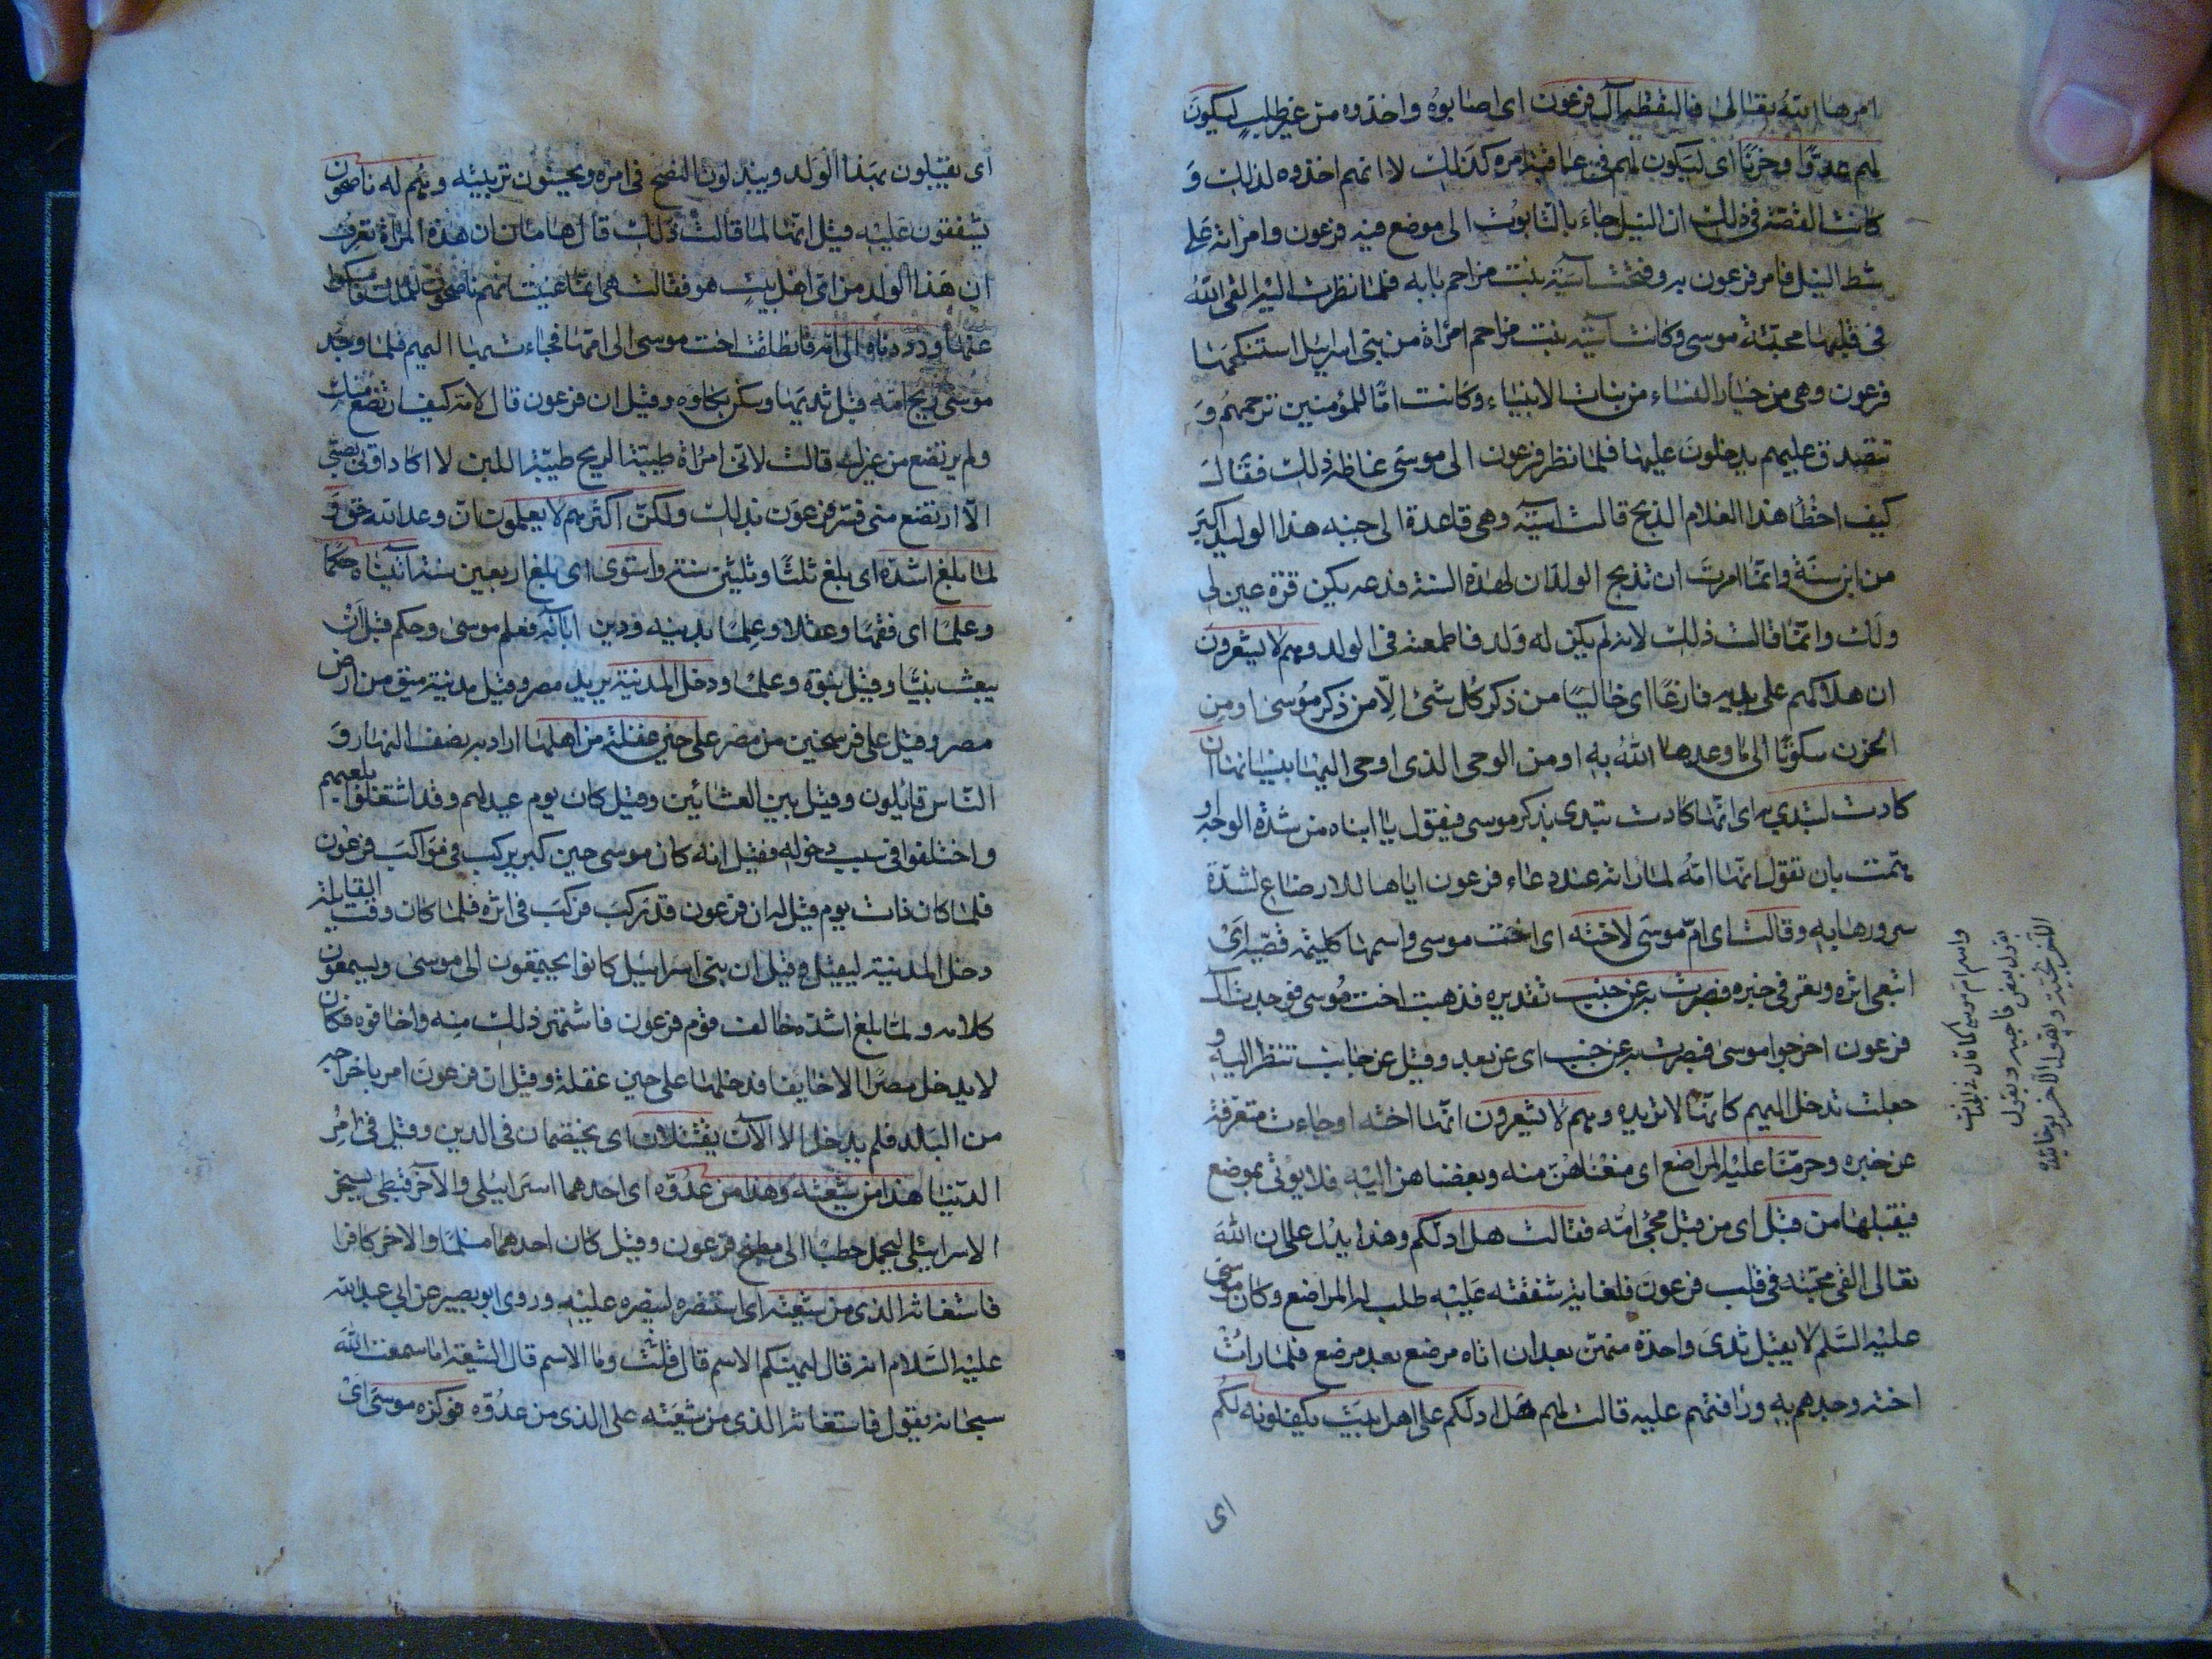 امرها الله تعالى فالتقطه آل فرعون اى اصابوه واخذوه من غير طلب ليكون
لهم عدوّا وحزنا اى ليكون لهم فى عاقبة امره كذلك لا انهم اخذوه لذلك و
كانت القصّة فى ذلك ان النيل جاء بالتابوت الى موضع فيه فرعون وامراته على
شط النيل فامر فرعون به وفتحت آسية بنت مزاحم بابه فلما نظرت اليه القى الله
فى قلبها محبّة موسى وكانت آسية بنت مزاحم امراة من بنى اسرايل استنكحها
فرعون وهى من خيار النساء من بنات الانبياء وكانت امّا للمؤمنين ترحمهم و
تتصدق عليهم يدخلون عليها فلما نظر فرعون الى موسى غاظه ذلك فقال
كيف اخطأ هذا الغلام الذبح قالت آسية وهى قاعدة الى جنبه هذا الوليد اكبر
من ابن سنة وانما امرت ان تذبح الولدان لهذه السنة فدعه يكن قرّة عين لى
ولك وانّما قالت ذلك لانه لم يكن له ولد فاطمعته فى الولد وهم لا يشعرون
ان هلاكهم على يديه فارغًا اى خاليًا من ذكر كل شئ الّا من ذكر موسى او من
الحزن سكونًا الى ما وعدها الله به او من الوحى الذى اوحى اليها بنسيانها ان
كادت لتبدى به اى انها كادت تبدى بذكر موسى فيقول يا ابناه من شدة الوجد او
همّت بان تقول انها امّه لما راته عند دعاء فرعون اياها للارضاع لشدّة
سرورها به وقالت اى امّ موسى لاخته اى اخت موسى واسمها كليثمه قصّيه اى
اتبعى اثره وتعرفى خبره فبصرت به عن جنب تقديره فذهبت اخت موسى فوجدت آل
فرعون اخرجوا موسى فبصرت به عن جنب اى عن بعد وقيل عن جانب تنظر اليه و
جعلت تدخل اليهم كانها لا تريده وهم لا يشعرون انها اخته او جاءت متعرفة
عن خبره وحرّمنا عليه المراضع اى منعناهنّ منه وبغضناهن اليه فلا يؤتى بمرضع
فيقبلها من قبل اى من قبل مجئ امّه فقالت هل ادلكم وهذا يدل على ان الله
تعالى القى محبّته فى قلب فرعون فلغاية شفقته عليه طلب له المراضع وكان موسى
عليه السّلم لا يقبل ثدى واحدة منهن بعد ان اتاه مرضع بعد مرضع فلما رات
اخته وجدهم به ورافتهم عليه قالت لهم هل ادلكم على اهل بيت يكفلونه لكم
اى
واسم ام موسى كما قال
اى يقبلون بهذا الولد ويبذلون النصح فى امره ويحسنون تربيته وهم له ناصحون
يشفقون عليه قيل انها لما قالت ذلك قال هامان ان هذه المراة تعرف
ان هذا الولد من اى اهل بيت هو فقالت هى انما عنيت انهم ناصحون للملك فامسكوا
عنها وردوناه الى امّه فانطلقت اخت موسى الى امّها فجاءت بها اليهم فلما وجد
موسى ريح امّه قبل ثديها وسكن بكاؤه وقيل ان فرعون قال لامّه كيف ارتضع منك
ولم يرتضع من غيرك قالت لانى امراة طيّبة الريح طيّبة اللبن لا اكاد اوتى بصبىّ
الّا ارتضع منى فسر فرعون بذلك ولكنّ اكثرهم لا يعلمون انّ وعد الله حق و
لما بلغ اشدّه اى بلغ ثلثًا وثلثين سنة واستوى اى بلغ اربعين سنة آتيناه حكمًا
وعلمًا اى فقهًا وعقلا وعلمًا بدينه ودين آبائه فعلم موسى وحكم قبل ان
يبعث نبيّا وقيل نبوّة وعلما ودخل المدينة يريد مصر وقيل مدينة منف من ارض
مصر وقيل على فرسخين من مصر على حين غفلة من اهلها اراد به نصف النهار و
النّاس قايلون وقيل بين العشائين وقيل كان يوم عيد لهم وقد اشتغلوا بلعبهم
واختلفوا فى سبب دخوله فقيل انه كان موسى حين كبر يركب فى مواكب فرعون
فلما كان ذات يوم قيل له ان فرعون قد ركب فركب فى اثره فلما كان وقت القايلة
دخل المدينة ليقيل وقيل ان بنى اسرائيل كانوا يجتمعون الى موسى ويسمعون
كلامه ولما بلغ اشدّه خالف قوم فرعون فاشتهر ذلك منه واخافوه فكان
لا يدخل مصرًا الا خايفا فدخلها على حين غفلة وقيل ان فرعون امر باخراجه
من البلد فلم يدخل الا الآن يقتتلان اى يختصمان فى الدين وقيل فى امر
الدنيا هذا من شيعته وهذا من عدوّه اى احدهما اسرائيلى والآخر قبطى يسخر
الاسرائيلى ليحمل حطبًا الى مطبخ فرعون وقيل كان احدهما مسلمًا والاخر كافرا
فاستغاثه الذى من شيعته اى استنصره لينصره عليه وروى ابو بصير عن ابى عبد الله
عليه السّلام انه قال ليهنكم الاسم قال قلت وما الاسم قال الشيعة اما سمعت الله
سبحانه يقول فاستغاثه الذى من شيعته على الذى من عدوّه فوكزه موسى اى